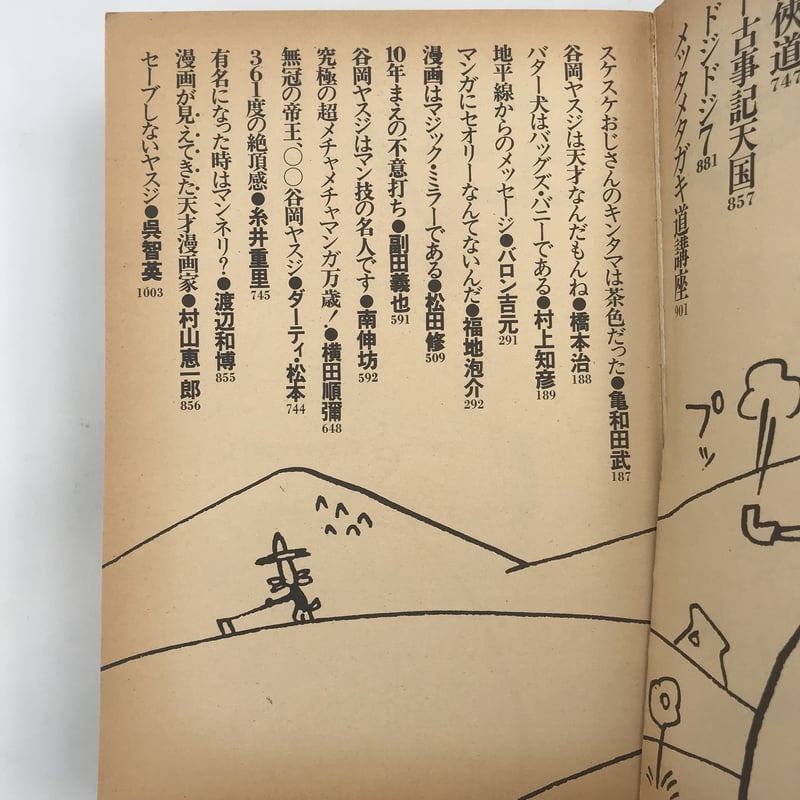 侠道
747
古事記天国
857
ドジドジ7
881
メッタメタガキ道講座
901
プッ
スケスケおじさんのキンタマは茶色だった●亀和田武
187
谷岡ヤスジは天才なんだもんね●橋本治
188
バター犬はバッグズ・バニーである●村上知彦
189
地平線からのメッセージ●バロン吉元
291
マンガにセオリーなんてないんだ●福地泡介
292
漫画はマジック・ミラーである●松田修
509
10年まえの不意打ち●副田義也
591
谷岡ヤスジはマン技の名人です●南伸坊
592
究極の超メチャメチャマンガ万歳!●横田順彌
648
無冠の帝王、○○谷岡ヤスジ●ダーティ・松本
744
361度の絶頂感●糸井重里
745
有名になった時はマンネリ?●渡辺和博
855
漫画が見えてきた天才漫画家●村山恵一郎
856
セーブしないヤスジ●呉智英
1003